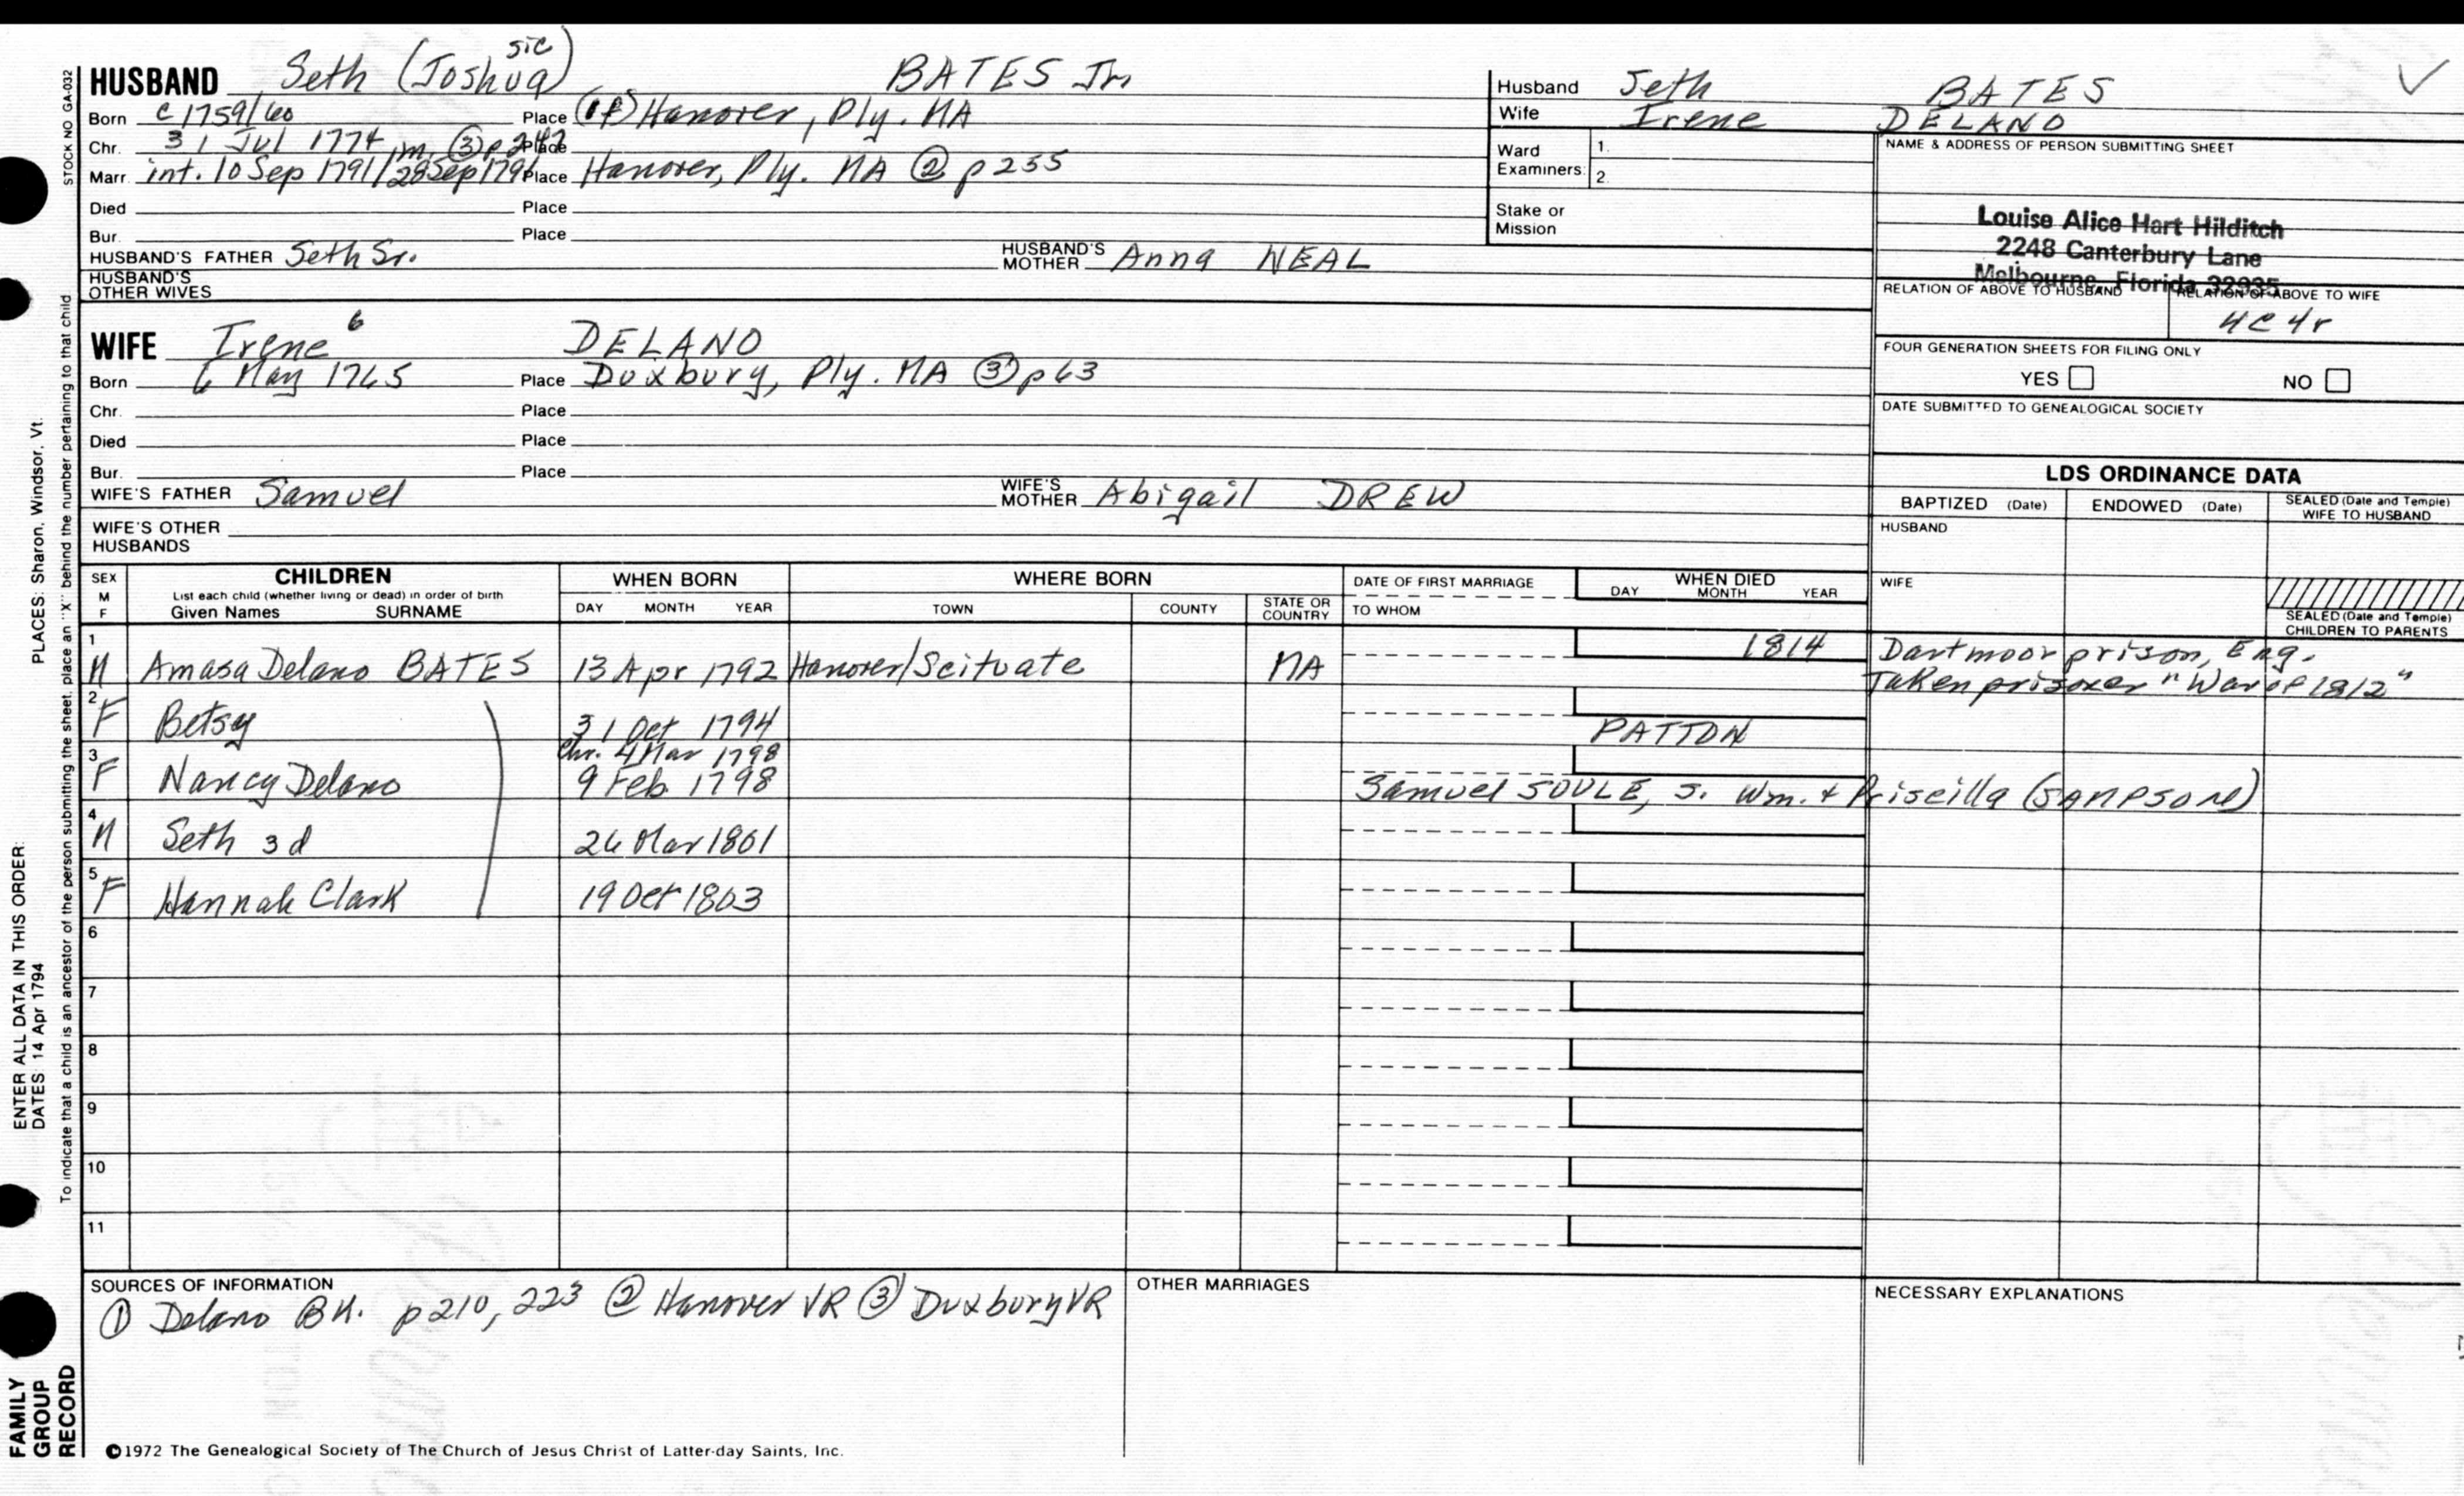 HUSBAND Seth (Joshua) sic BATES Jr.
Born c 1759/60 Place (of) Hanover, Ply. MA
Chr. 31 Jul 1774 Place
m. ③ p 242
Marr. int. 10 Sep 1791/28 Sep 1791 Place Hanover, Ply. MA ② p 235
Died Place
Bur. Place
HUSBAND'S FATHER Seth Sr. HUSBAND'S MOTHER Anna NEAL
HUSBAND'S OTHER WIVES
WIFE Irene 6 DELANO
Born 6 May 1765 Place Duxbury, Ply. MA ③ p 63
Chr. Place
Died Place
Bur. Place
WIFE'S FATHER Samuel WIFE'S MOTHER Abigail DREW
WIFE'S OTHER HUSBANDS
Husband Seth BATES
Wife Irene DELANO
Ward Examiners: 1. 2.
Stake or Mission
NAME & ADDRESS OF PERSON SUBMITTING SHEET
Louise Alice Hart Hilditch
2248 Canterbury Lane
Melbourne, Florida 32935
RELATION OF ABOVE TO HUSBAND RELATION OF ABOVE TO WIFE
4C 4r
FOUR GENERATION SHEETS FOR FILING ONLY
YES NO
DATE SUBMITTED TO GENEALOGICAL SOCIETY
LDS ORDINANCE DATA
BAPTIZED (Date) ENDOWED (Date) SEALED (Date and Temple) WIFE TO HUSBAND
HUSBAND
WIFE
SEALED (Date and Temple) CHILDREN TO PARENTS
SEX M F
CHILDREN
List each child (whether living or dead) in order of birth
Given Names SURNAME
WHEN BORN
DAY MONTH YEAR
WHERE BORN
TOWN COUNTY STATE OR COUNTRY
DATE OF FIRST MARRIAGE
TO WHOM
WHEN DIED
DAY MONTH YEAR
1 M Amasa Delano BATES 13 Apr 1792 Hanover/Scituate MA 1814 Dartmoor prison, Eng.
Taken prisoner "War of 1812"
2 F Betsy 31 Oct 1794 PATTON
chr. 4 Mar 1798
3 F Nancy Delano 9 Feb 1798 Samuel SOULE, s. Wm. + Priscilla (SAMPSON)
4 M Seth 3d 26 Mar 1801
5 F Hannah Clark 19 Oct 1803
6
7
8
9
10
11
SOURCES OF INFORMATION
① Delano BK. p 210, 223 ② Hanover VR ③ Duxbury VR
OTHER MARRIAGES
NECESSARY EXPLANATIONS
©1972 The Genealogical Society of The Church of Jesus Christ of Latter-day Saints, Inc.
STOCK NO GA-032
To indicate that a child is an ancestor of the person submitting the sheet, place an "X" behind the number pertaining to that child
ENTER ALL DATA IN THIS ORDER:
PLACES: Sharon, Windsor, Vt.
DATES: 14 Apr 1794
FAMILY GROUP RECORD